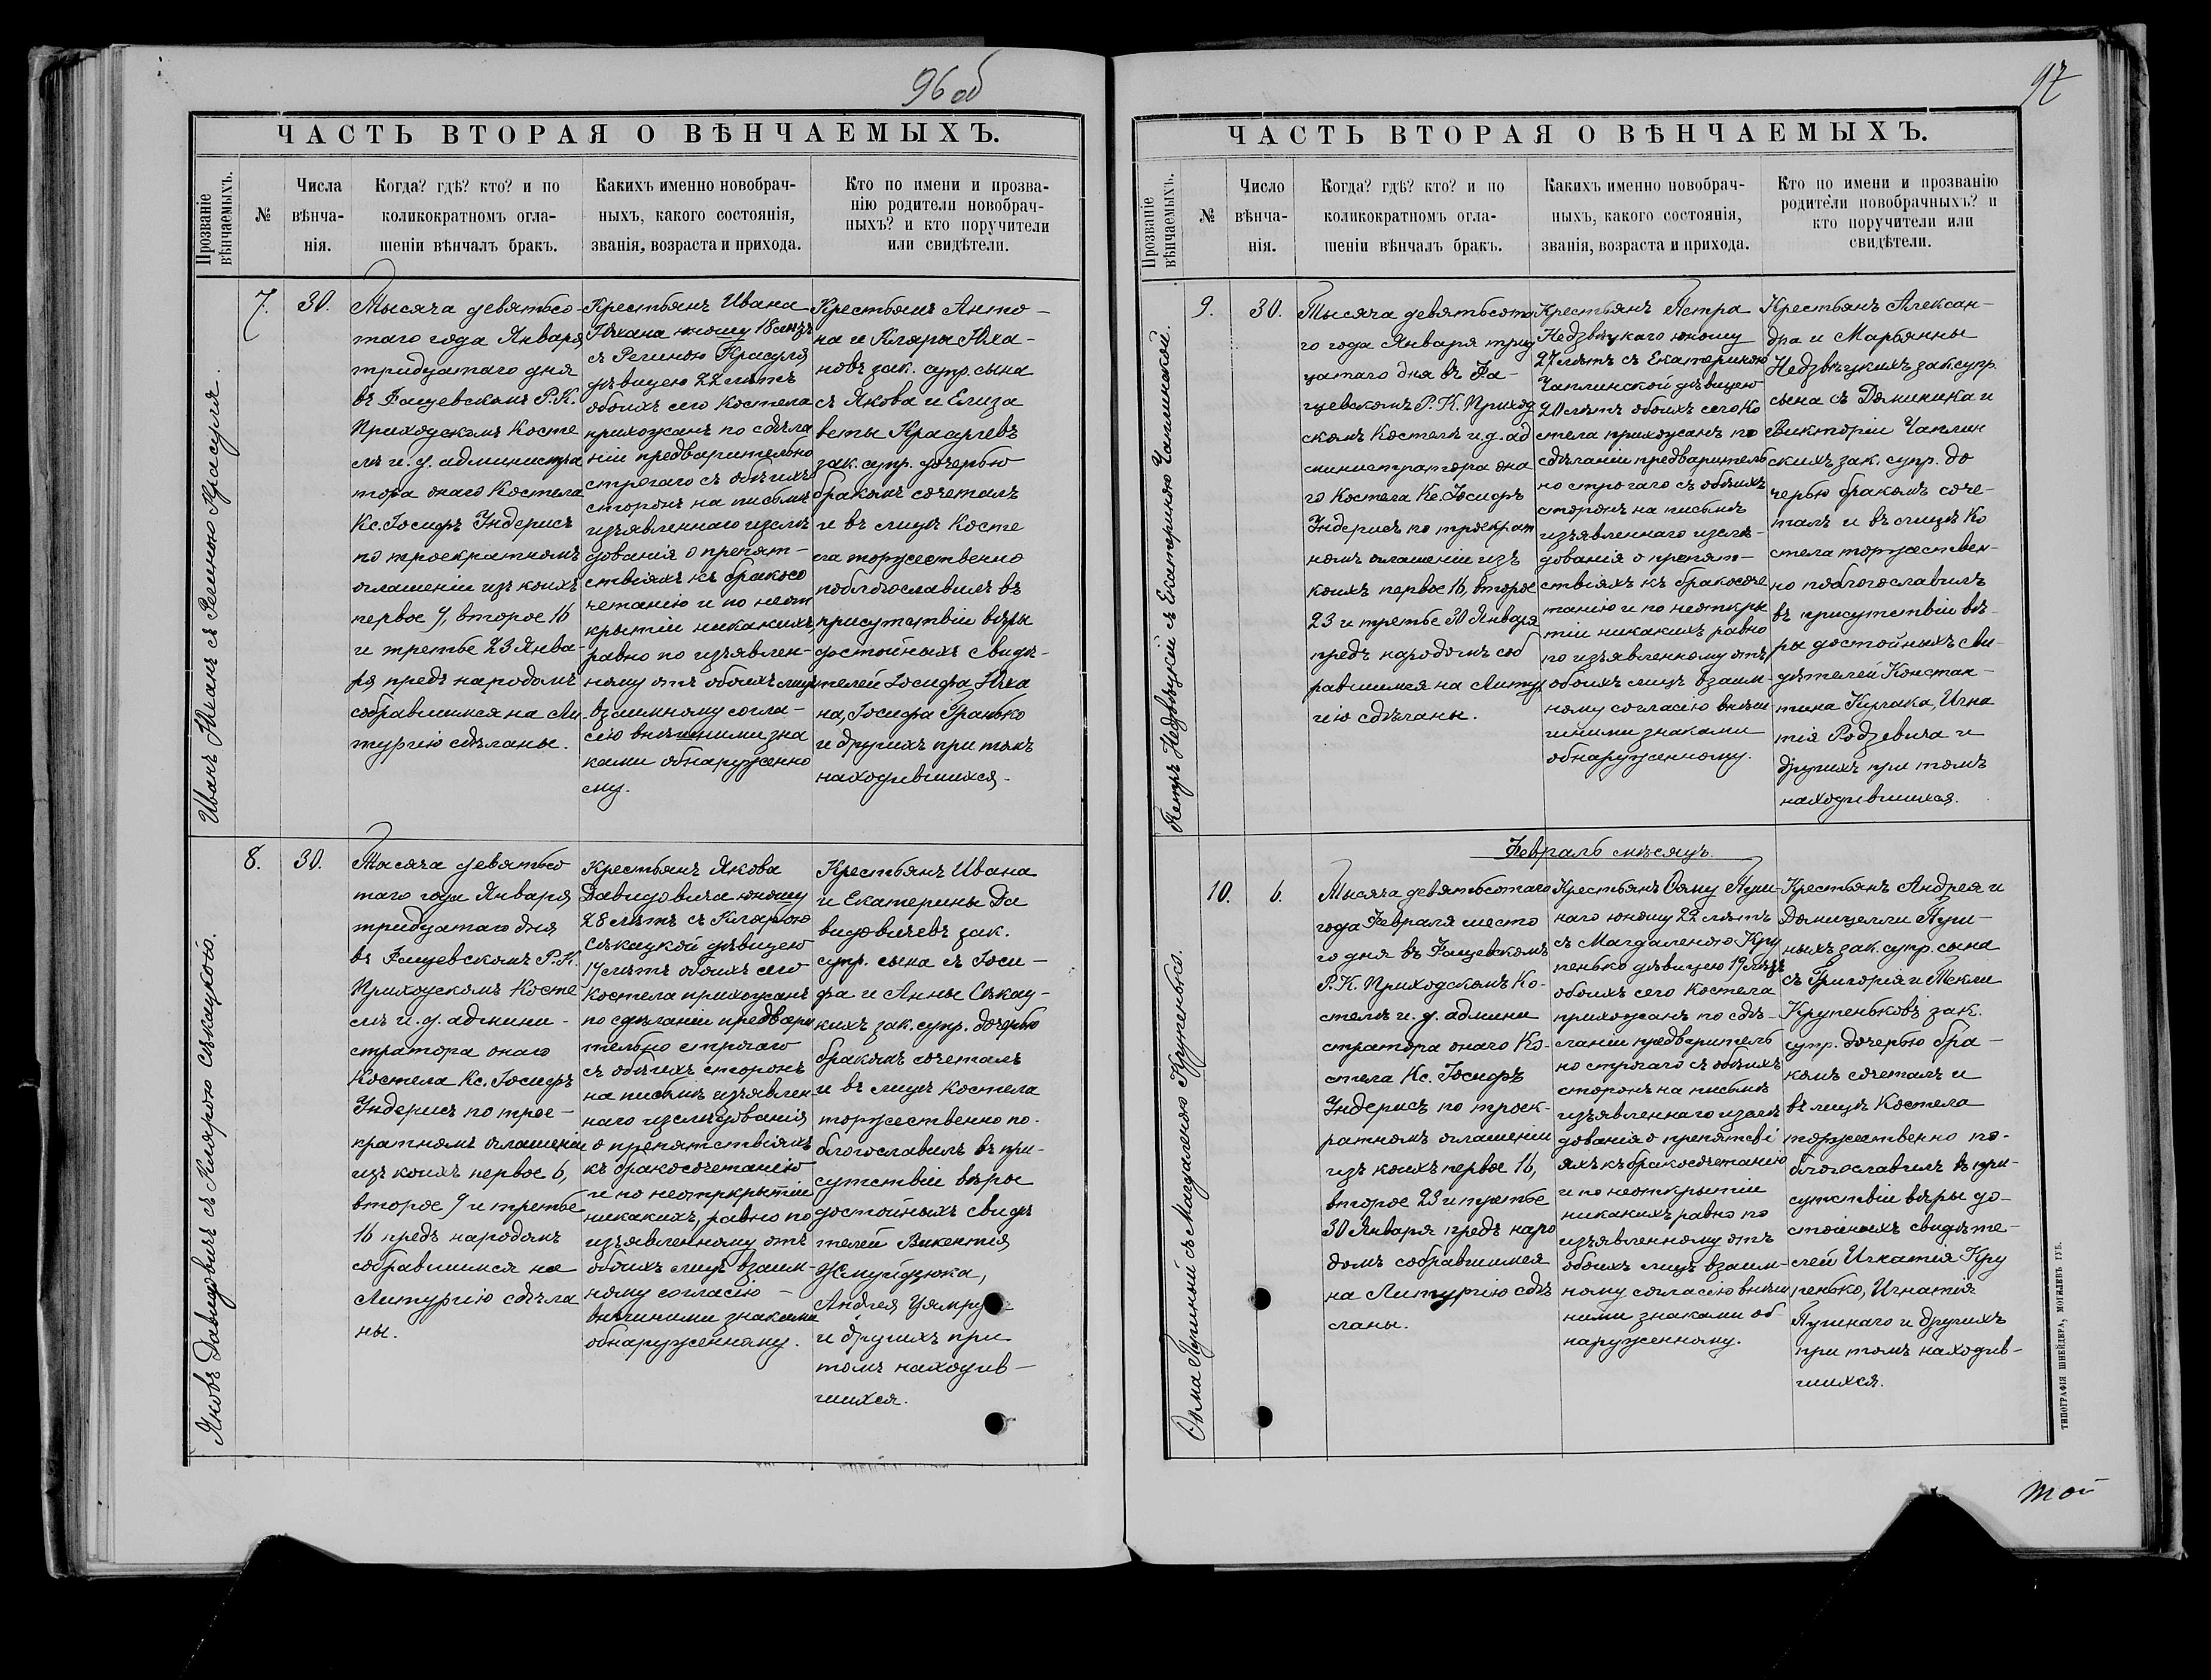 96 об
ЧАСТЬ ВТОРАЯ О ВѢНЧАЕМЫХЪ.
Прозваніе
вѣнчаемыхъ.
№
Числа
вѣнча-
нія.
Когда? гдѣ? кто? и по
коликократномъ огла-
шеніи вѣнчалъ бракъ.
Какихъ именно новобрач-
ныхъ, какого состоянія,
званія, возраста и прихода.
Кто по имени и прозва-
нію родители новобрач-
ныхъ? и кто поручители
или свидѣтели.
Иванъ Юханъ съ Региною Красуля.
7.
30.
Тысяча девятьсо-
таго года Января
тридцатаго дня
въ Фащевскомъ Р.К.
Приходскомъ Косте
лѣ и. д. администра
тора онаго Костела
Кс. Іосифъ Эндерисъ
по троекратномъ
оглашеніи изъ коихъ
первое 9, второе 16
и третье 23 Янва-
ря предъ народомъ
собравшимся на Ли-
тургію сдѣланы.
Крестьянъ Ивана
Юхана юношу 18 лѣтъ
съ Региною Красуля
дѣвицею 22 лѣтъ
обоихъ сего Костела
прихожанъ по сдѣла
ніи предварительно
строгаго съ обѣихъ
сторонъ на письмѣ
изъявленнаго изслѣ
дованія о препят-
ствіяхъ къ бракосо
четанію и по неот
крытіи никакихъ,
равно по изъявлен-
ному отъ обоихъ лицъ
взаимному согла-
сію внѣшними зна
ками обнаруженно
му.
Крестьянъ Анто-
на и Клары Юха-
новъ зак. супр. сына
съ Якова и Елиза
веты Красулевъ
зак. супр. дочерью
бракомъ сочеталъ
и въ лицѣ Косте
ла торжественно
поблогославилъ въ
присутствіи вѣры
достойныхъ Свидѣ-
телей Іосифа Юха
на, Іосифа Гранько
и другихъ при томъ
находившихся.
Яковъ Давидовичъ съ Кларою Сѣкацкою.
8.
30.
Тысяча девятьсо
таго года Января
тридцатаго дня
въ Фащевскомъ Р.К.
Приходскомъ Косте
лѣ и. д. админи-
стратора онаго
Костела Кс. Іосифъ
Эндерисъ по трое-
кратномъ оглашеніи
изъ коихъ первое 6,
второе 9 и третье
16 предъ народомъ
собравшимся на
Литургію сдѣла
ны.
Крестьянъ Якова
Давидовича юношу
28 лѣтъ съ Кларою
Сѣкацкой дѣвицею
17 лѣтъ обоихъ сего
Костела прихожанъ
по сдѣланіи предвари
тельно строгаго
съ обѣихъ сторонъ
на письмѣ изъявлен
наго изслѣдованія
о препятствіяхъ
къ бракосочетанію
и по неоткрытіи
никакихъ, равно по
изъявленному отъ
обоихъ лицъ взаим-
ному согласію
внѣшними знаками
обнаруженному.
Крестьянъ Ивана
и Екатерины Да
видовичевъ зак.
супр. сына съ Іоси-
фа и Анны Сѣкац-
кихъ зак. супр. дочерью
бракомъ сочеталъ
и въ лицѣ Костела
торжественно по-
блогославилъ въ при-
сутствіи вѣры
достойныхъ свидѣ
телей Викентія
Жмуйдзюка,
Андрея
и другихъ при
томъ находив-
шихся.
97
ЧАСТЬ ВТОРАЯ О ВѢНЧАЕМЫХЪ.
Прозваніе
вѣнчаемыхъ.
№
Число
вѣнча-
нія.
Когда? гдѣ? кто? и по
коликократномъ огла-
шеніи вѣнчалъ бракъ.
Какихъ именно новобрач-
ныхъ, какого состоянія,
званія, возраста и прихода.
Кто по имени и прозванію
родители новобрачныхъ? и
кто поручители или
свидѣтели.
Петръ Недзвѣцкій съ Екатериною Чаплинской.
9.
30.
Тысяча девятьсота
го года Января трид
цатаго дня въ Фа-
щевскомъ Р.К. Приход
скомъ Костелѣ и. д. ад
министратора она
го Костела Кс. Іосифъ
Эндерисъ по троекрат
номъ оглашеніи изъ
коихъ первое 16, второе
23 и третье 30 Января
предъ народомъ соб
равшимся на Литур
гію сдѣланы.
Крестьянъ Петра
Недзвѣцкаго юношу
27 лѣтъ съ Екатериною
Чаплинской дѣвицею
20 лѣтъ обоихъ сего Ко
стела прихожанъ по
сдѣланіи предваритель
но строгаго съ обѣихъ
сторонъ на письмѣ
изъявленнаго изслѣ-
дованія о препят-
ствіяхъ къ бракосоче
танію и по неоткры
тіи никакихъ равно
по изъявленному отъ
обоихъ лицъ взаим-
ному согласію внѣш
ними знаками
обнаруженному.
Крестьянъ Алексан-
дра и Марьянны
Недзвѣцкихъ зак. супр.
сына съ Доминика и
Викторіи Чаплин
скихъ зак. супр. до
черью бракомъ соче-
талъ и въ лицѣ Ко
стела торжествен-
но поблогославилъ
въ присутствіи вѣ-
ры достойныхъ сви-
дѣтелей Констан-
тина Кирпака, Игна
тія Родзевича и
другихъ при томъ
находившихся.
Февраль мѣсяцъ.
Ѳома Пушный съ Магдаленою Крупенько.
10.
6.
Тысяча девятьсотаго
года Февраля шесто
го дня въ Фащевскомъ
Р.К. Приходскомъ Ко-
стелѣ и. д. админи
стратора онаго Ко-
стела Кс. Іосифъ
Эндерисъ по троек-
ратномъ оглашеніи
изъ коихъ первое 16,
второе 23 и третье
30 Января предъ наро
домъ собравшимся
на Литургію сдѣ
ланы.
Крестьянъ Ѳому Пуш
наго юношу 22 лѣтъ
съ Магдаленою Кру
пенько дѣвицею 19 лѣтъ
обоихъ сего Костела
прихожанъ по сдѣ-
ланіи предваритель
но строгаго съ обѣихъ
сторонъ на письмѣ
изъявленнаго изслѣ
дованія о препятстві
яхъ къ бракосочетанію
и по неоткрытіи
никакихъ равно по
изъявленному отъ
обоихъ лицъ взаим-
ному согласію внѣш
ними знаками об
наруженному.
Крестьянъ Андрея и
Домицелли Пуш-
ныхъ зак. супр. сына
съ Григорія и Текли
Крупеньковъ зак.
супр. дочерью бра-
комъ сочеталъ и
въ лицѣ Костела
торжественно по-
блогославилъ въ при-
сутствіи вѣры до-
стойныхъ свидѣте-
лей Игнатія Кру
пенько, Игнатія
Пушнаго и другихъ
при томъ находив-
шихся.
ТИПОГРАФІЯ ШНЕЙДЕРА, МОГИЛЕВЪ ГУБ.
той